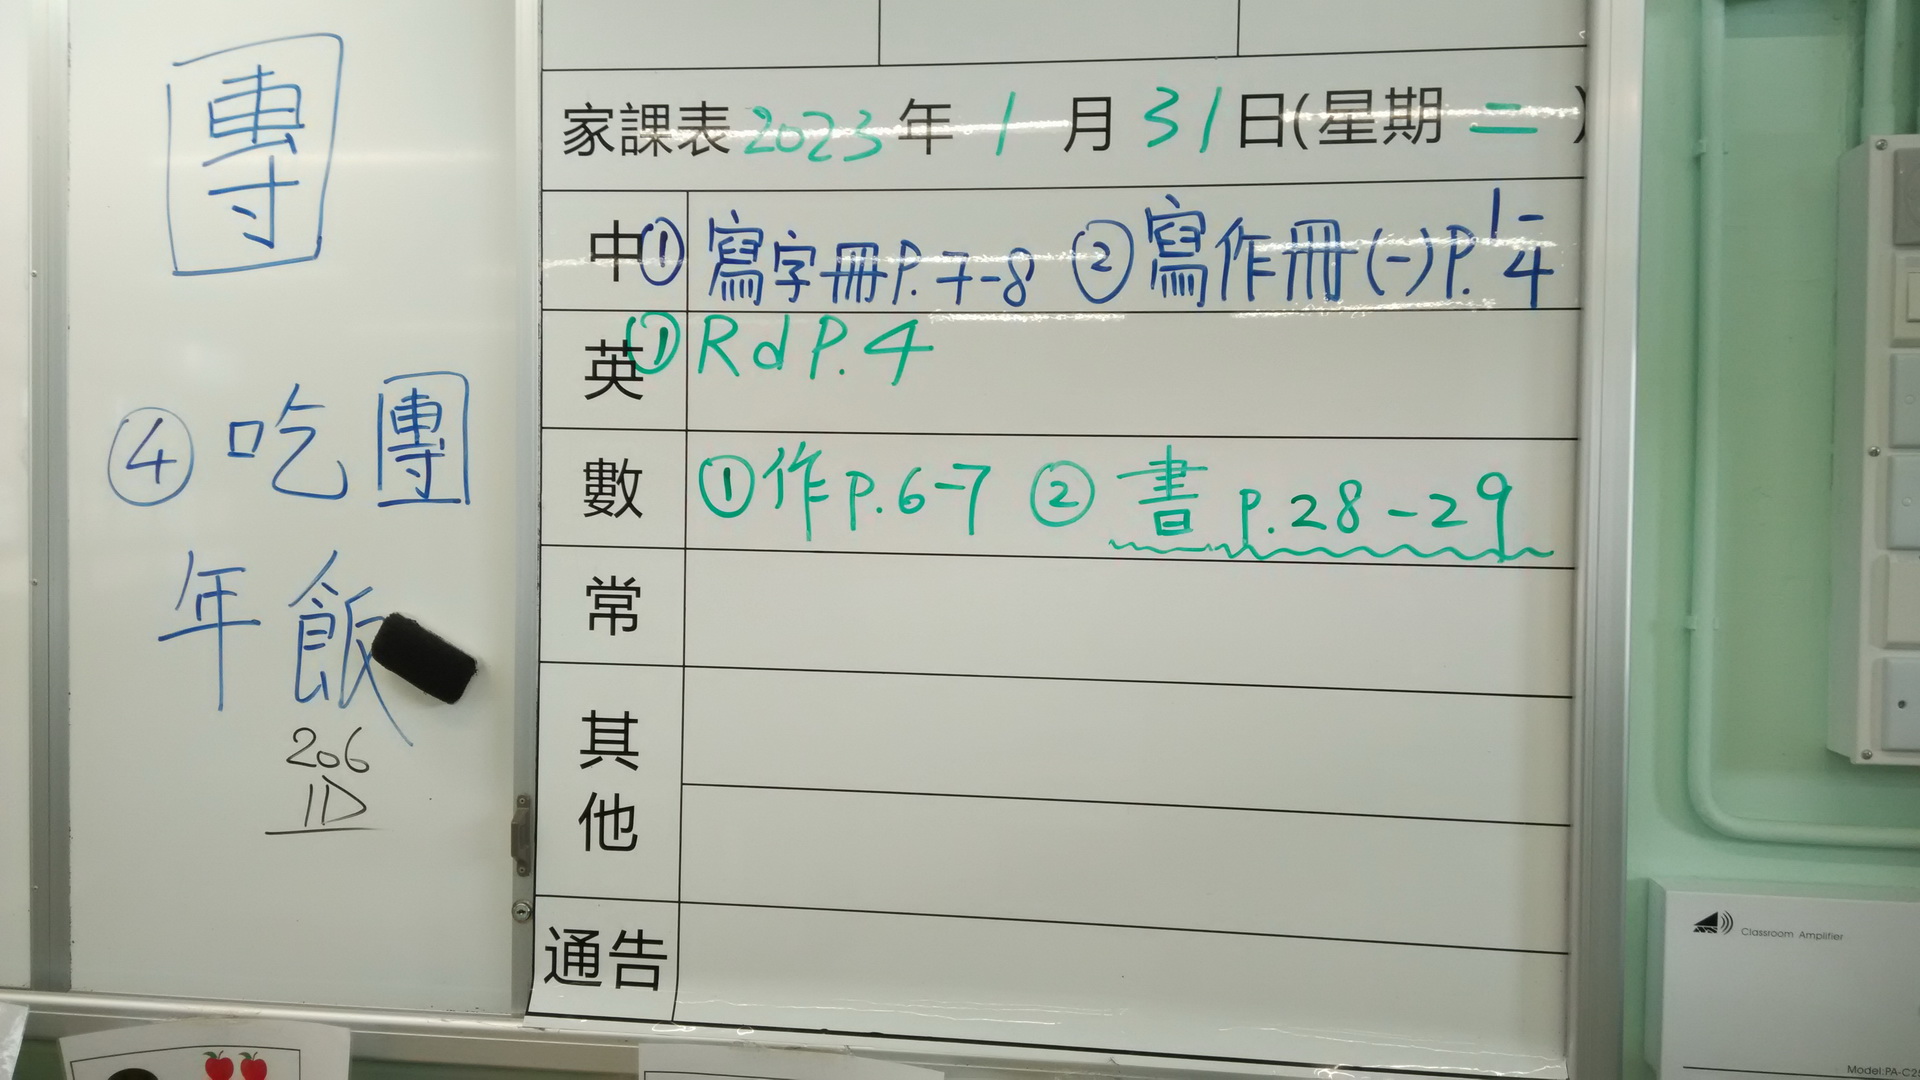 團
④ 吃團
年飯
206
1D
家課表 2023 年 1 月 31 日(星期 二 )
中 ① 寫字冊P.7-8 ② 寫作冊(一)P.1-4
英 ① Rd P.4
數 ① 作 p.6-7 ② 書 p.28-29
常
其他
通告
Classroom Amplifier